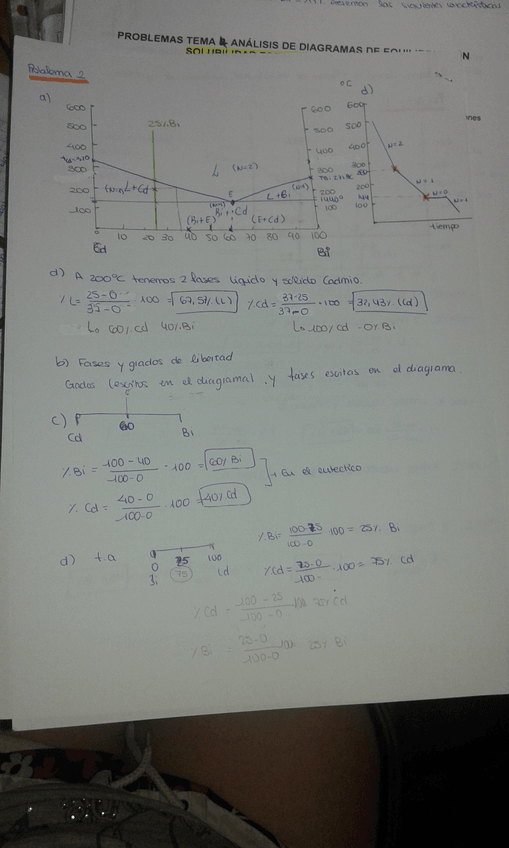 PROBLEMAS TEMA 4 ANÁLISIS DE DIAGRAMAS DE
N
SOLUBILIDAD
ines
Problema 2
a)
600
500
400
300
200
100
25% Bi
L (N=2)
L+Cd
E
L+Bi
(Bi+E)
(E+Cd)
Cd 10 20 30 40 50 60 70 80 90 100
Bi
600
500
400
300
200
100
ºC
d)
600
500
400
300
200
100
N=2
N=1
N=0
N=1
tiempo
d) A 200ºC tenemos 2 fases líquido y sólido Cadmio.
% L = 25-0 / 37-0 · 100 = 67,57% (L) % Cd = 37-25 / 37-0 · 100 = 37,43% (Cd)
↳ 60% Cd 40% Bi ↳ 100% Cd - 0% Bi
b) Fases y grados de libertad
Grados (escritos en el diagrama), y fases escritas en el diagrama.
c)
E
Cd 60 Bi
% Bi = 100-40 / 100-0 · 100 = 60% Bi
En el eutectico
% Cd = 40-0 / 100-0 · 100 = 40% Cd
d) t.a
0 75 100
Bi 75 Cd
% Bi = 100-75 / 100-0 · 100 = 25% Bi
% Cd = 75-0 / 100- · 100 = 75% Cd
% Cd = 100-25 / 100-0 100 75% Cd
% Bi = 25-0 / 100-0 100 25% Bi